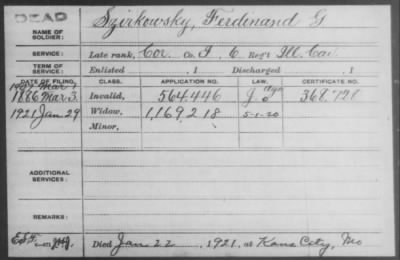 DEAD
NAME OF SOLDIER: Szirkowsky, Ferdinand G
SERVICE: Late rank, Cor. Co. I, 6 Reg't Ill. Cav.
TERM OF SERVICE: Enlisted , 1 Discharged , 1
DATE OF FILING. CLASS. APPLICATION NO. LAW. CERTIFICATE NO.
1907 Mar
1886 Mar. 3. Invalid, 564.446 368.728
1921 Jan 29 Widow, 1,169 218 5-1-20
Minor,
ADDITIONAL SERVICES:
REMARKS:
Died Jan 22, 1921, at Kans City, Mo